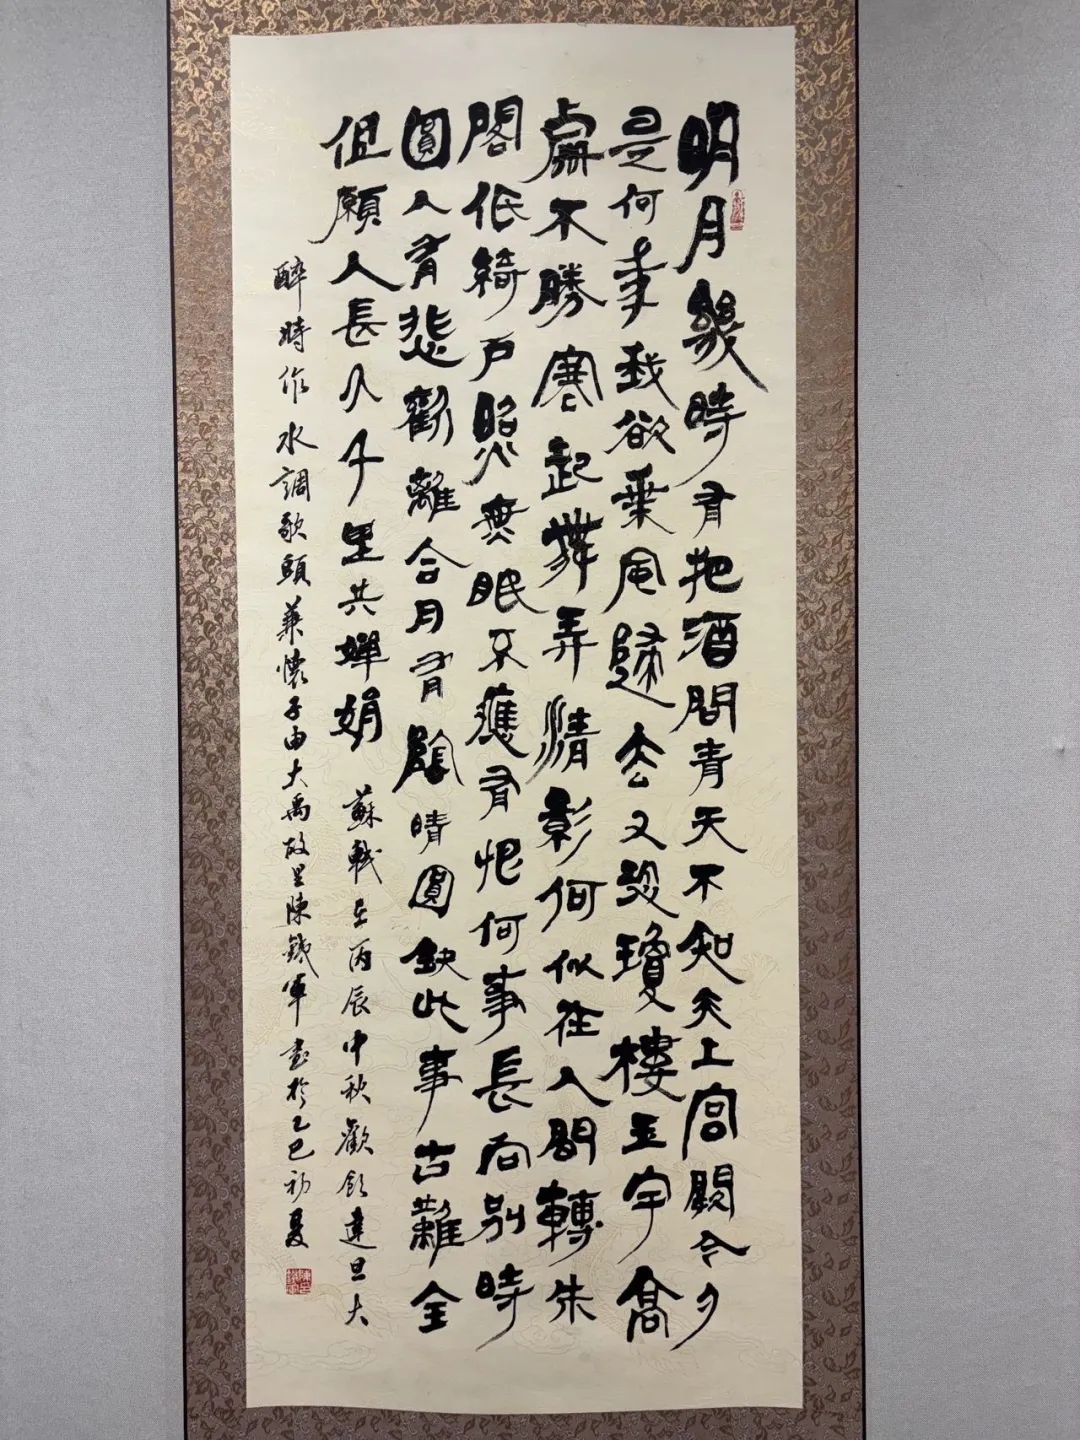 明月幾時有把酒問青天不知天上宮闕今夕
是何年我欲乘風歸去又恐瓊樓玉宇高
處不勝寒起舞弄清影何似在人間轉朱
閣低綺戶照無眠不應有恨何事長向別時
圓人有悲歡離合月有陰晴圓缺此事古難全
但願人長久千里共嬋娟 蘇軾在丙辰中秋歡飲達旦大
醉時作水調歌頭兼懷子由大禹故里陳鐵軍書於乙巳初夏